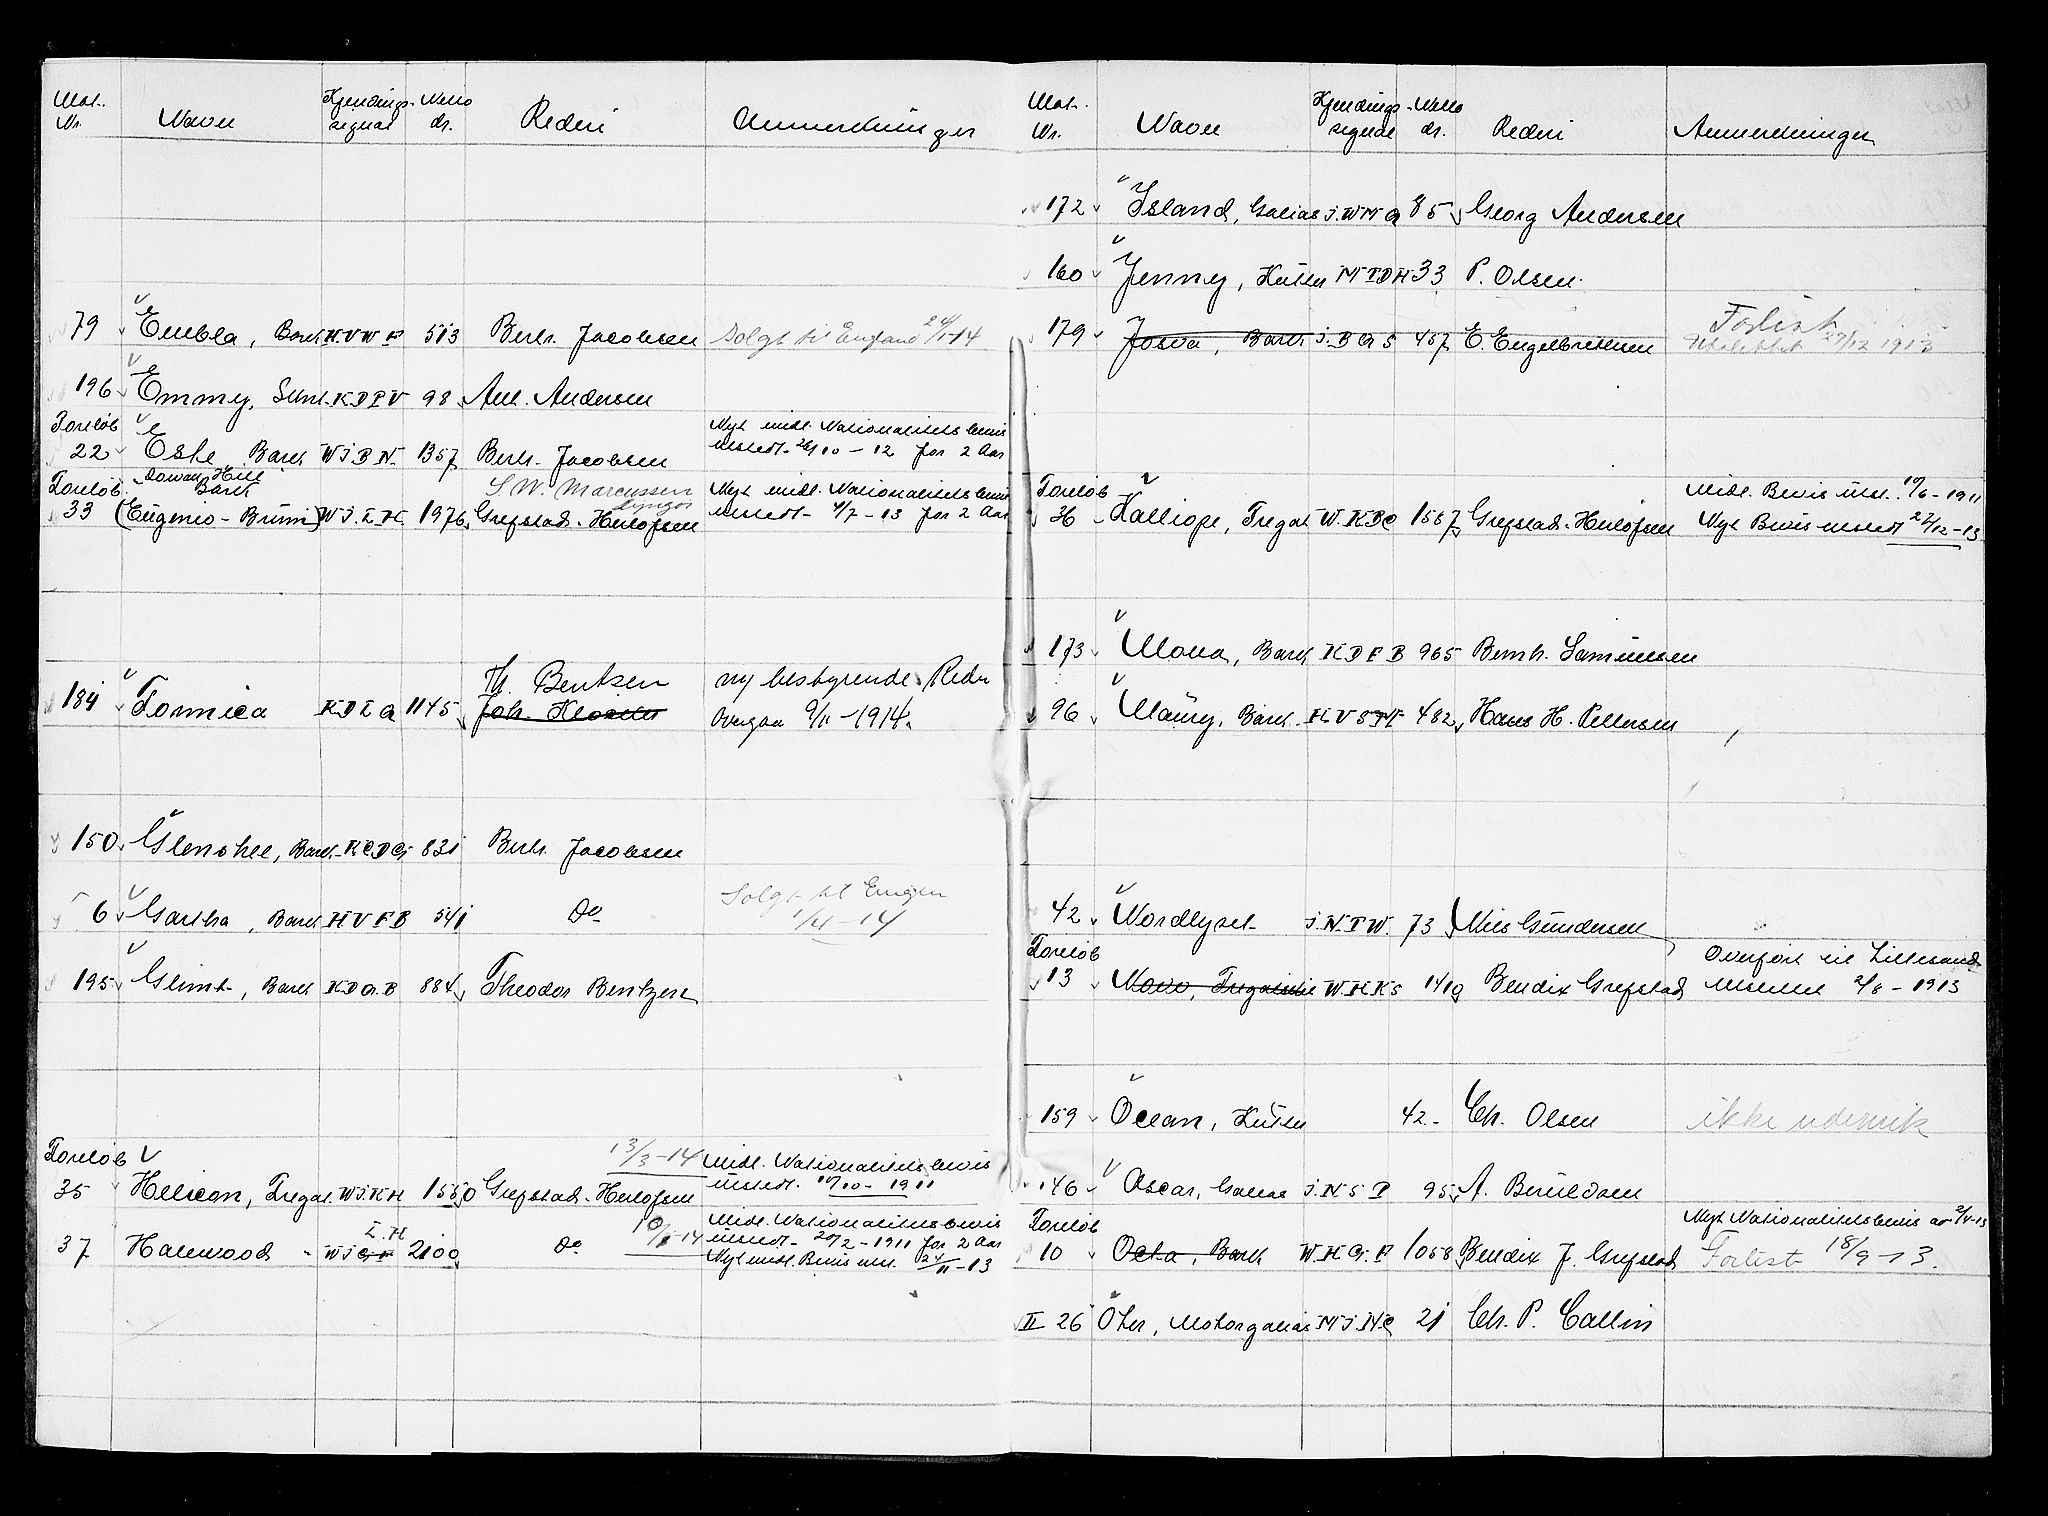 Mat. Nr. Navn Kjendings-signal Netto dr. Rederi Anmerkninger
79 Embla, Bark H.V.W.P 513 Berh. Jacobsen Solgt til England 24/1-14
196 Emmy, Sknt. K.D.P.V 98 Ant. Andersen
Foreløb 22 Este Bark W.J.B.N. 1357 Berh. Jacobsen Nyt midl. Nationalitetsbevis utstedt 26/10-12 for 2 Aar
Dowan Hill Bark S.W. Marcussen Lyngør
Foreløb 33 (Eugenio-Bruni) W.J. 1976 Grefstad-Herlofsen Nyt midl. Nationalitetsbevis utstedt 4/7-13 for 2 Aar
Th. Bentzen ny bestyrende Reder
184 Formica 1145 Joh. Overgaa 9/11-1914
150 Glenshee, Bark K.C.D.G. 831 Berh. Jacobsen
6 Gartha, Bark H.V.F.B 541 Do Solgt til 1/4-14
195 Glimt, Bark K.D.G.B 884 Theodor Bentzen
13/3-14
Foreløb 35 Helicon, Fregat. W.J.K.H 1550 Grefstad-Herlofsen Midl. Nationalitetsbevis utstedt. 10/10-1911
37 Hanwood - 2100 Do Midl. Nationalitetsbevis utstedt 20/2-1911 for 2 Aar
Nyt midl. Bevis utst. 24/11-13
Mat. Nr. Navn Kjendings-signal Netto dr. Rederi Anmerkninger
172 Island, Galias J.W.M.G 85 Georg Andersen
160 Jenny, Kutter M.T.D.H 33 P. Olsen.
179 Josva, Bark J.B.G.S 457 E. Engebrethsen Forlist Utslettet 27/12 1913
Foreløb 36 Kalliope, Fregat W.K.B.C 1567 Grefstad-Herlofsen Midl. Bevis utst. 19/6-1911
Nyt Bevis utstedt 22/12-13
173 Mona, Bark K.D.F.B 965 Bernh. Samuelsen
96 Maury, Bark 482 Hans H. Pettersen
42 Nordlyset J.N.T.W. 73 Nils Gundersen
Foreløb 13 Novo, W.H.K.S 1410 Bendix Grefstad Overført til Lillesand 2/8-1913
159 Ocean, Kutter 42- Chr. Olsen ikke udenrik
146 Oscar, Galias J.N.S.D 95 A.
Foreløb 10 Octa, Bark W.H.G.P 1058 Bendix J. Grefstad Nyt Nationalitetsbevis av 2/4-13
Forlist 18/9-13.
II 26 Oter, Motorgalias M.J.N.C 21 Chr. P. Callin